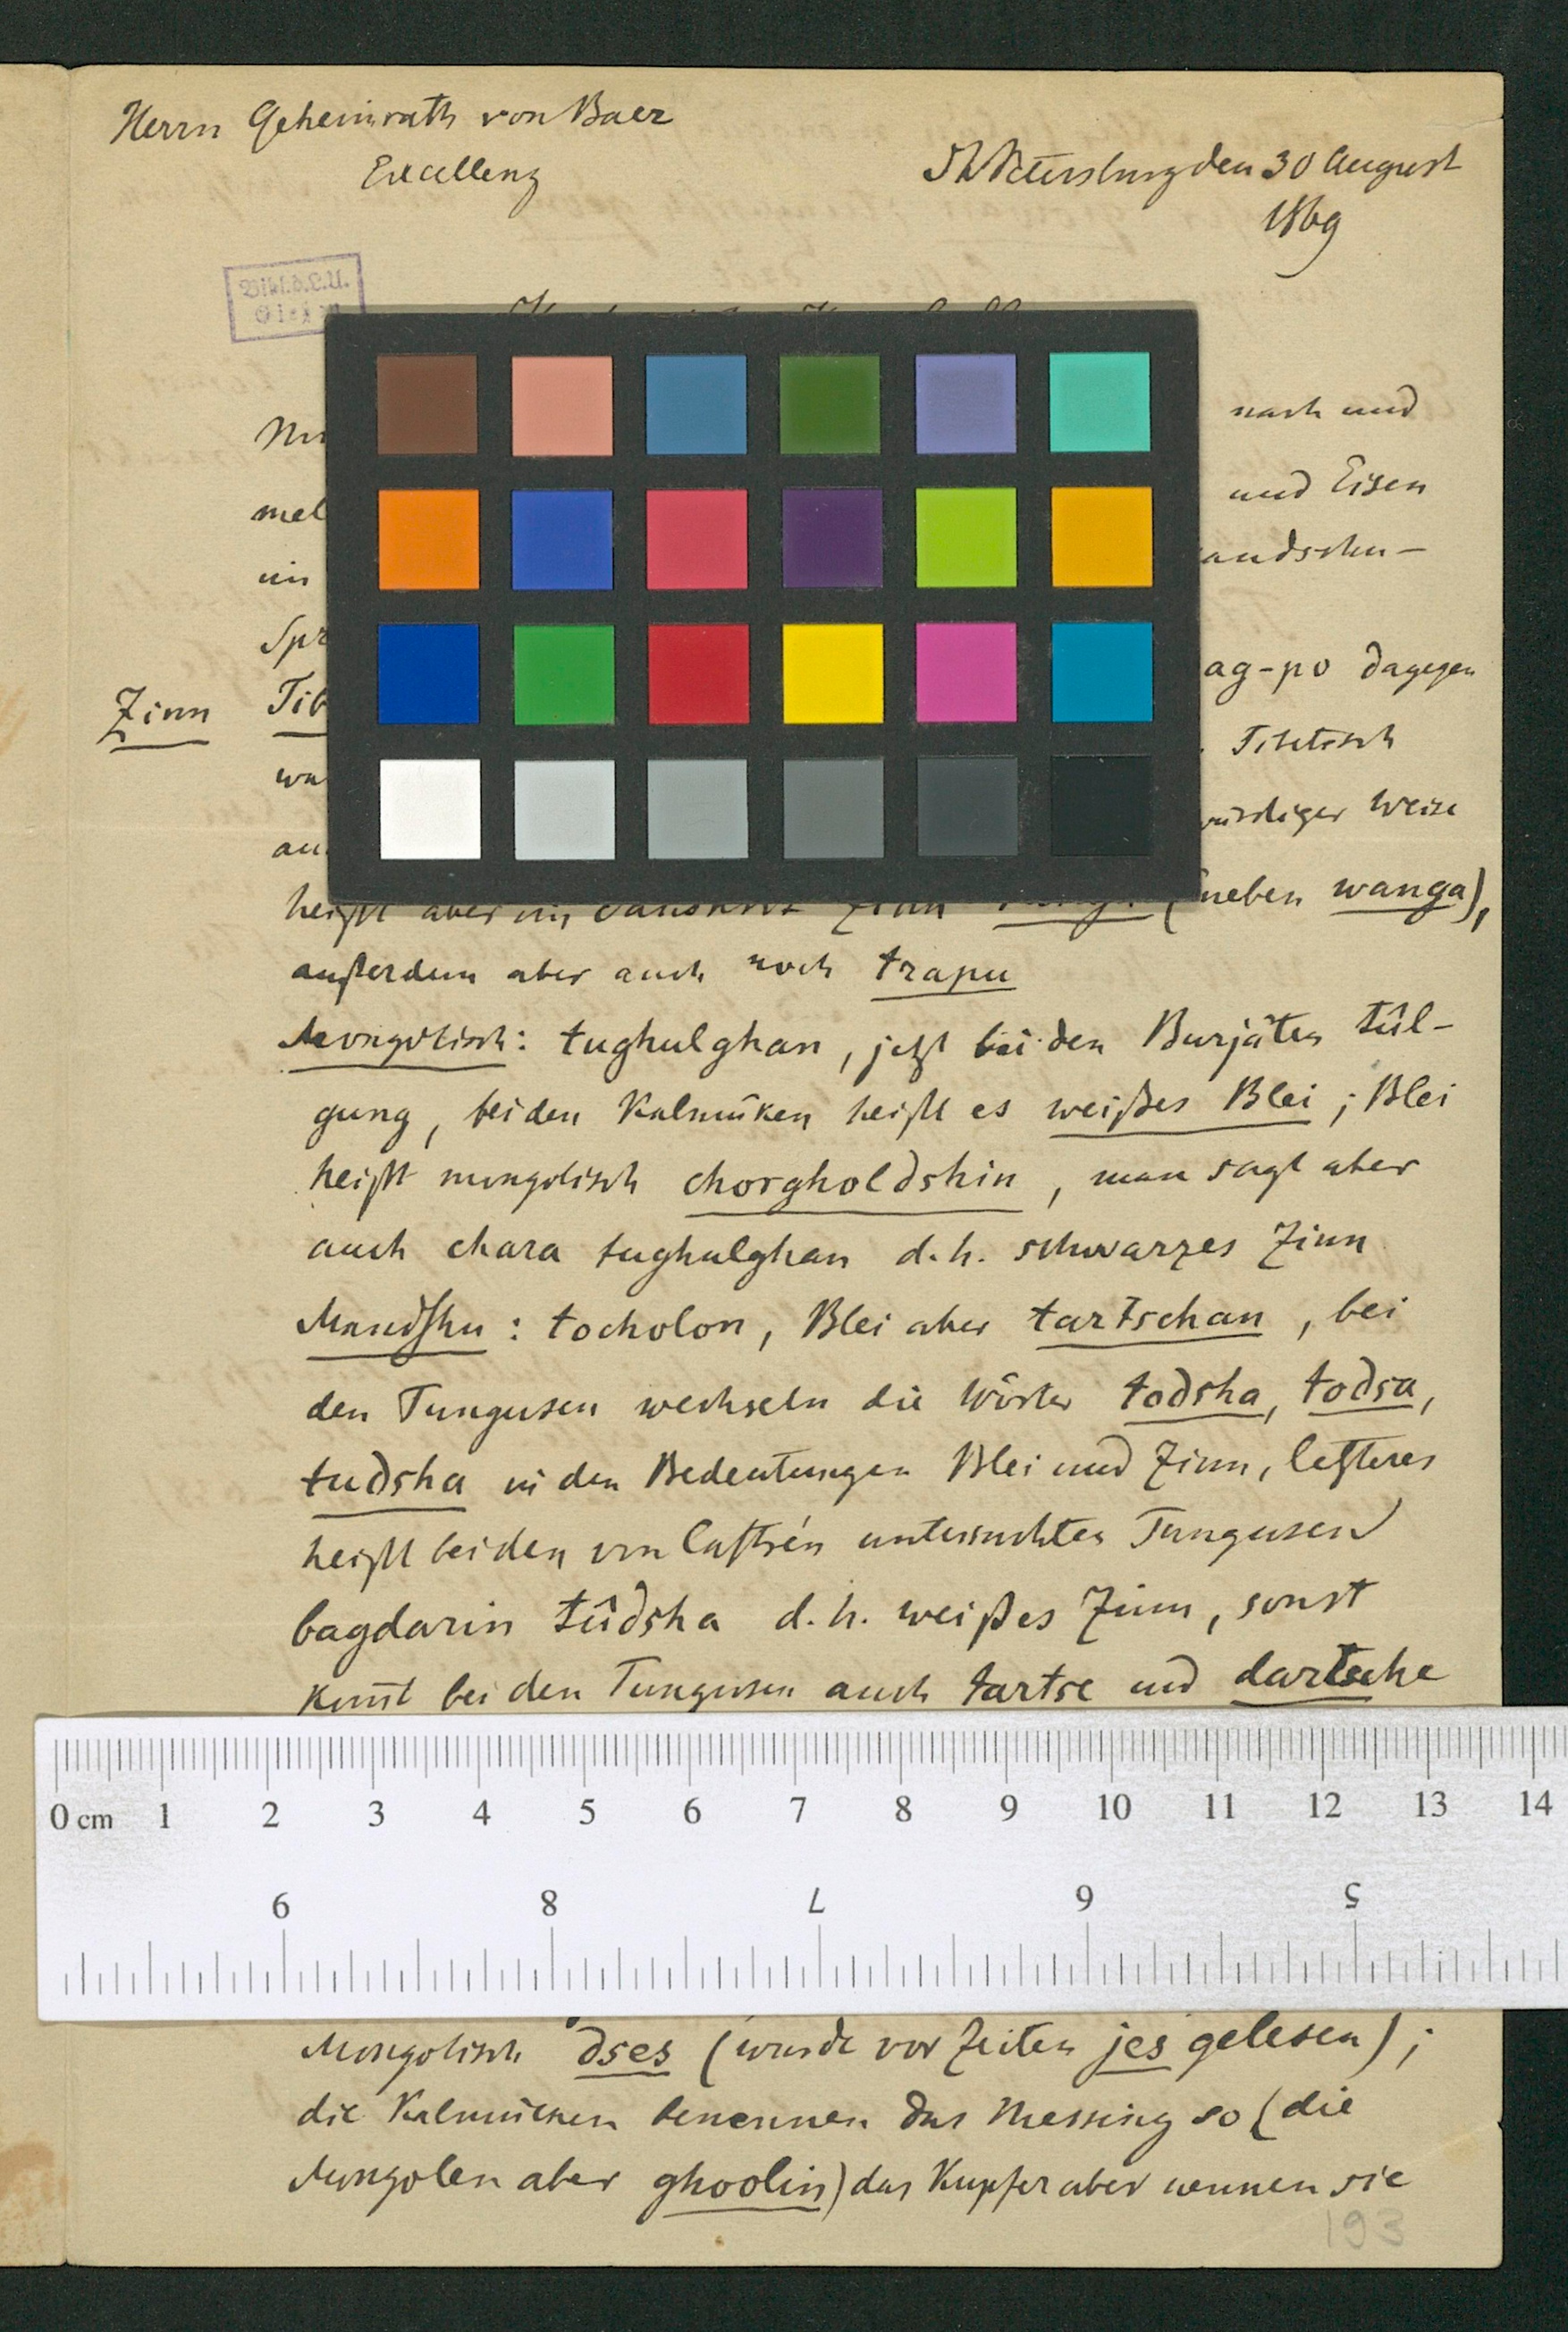 Herrn Geheimrath von Baer
Excellenz
St Petersburg den 30 August
1869
Bibl. d. L. U.
nach und
mel
und Eisen
im
andschu-
Spr
ag-po dagegen
Zinn Tib
Tibetisch
wa
würdiger Weise
au
heißt aber im Sanskrit Zinn (neben wanga),
außerdem aber auch noch trapu
Mongolisch: tughulghan, jetzt bei den Burjäten tûl-
gung, bei den Kalmüken heißt es weißes Blei; Blei
heißt mongolisch chorgholdshin, man sagt aber
auch chara tughulghan d. h. schwarzes Zinn
Mandshu: tocholon, Blei aber tartschan, bei
den Tungusen wechseln die Wörter todsha, todsa,
tudsha in den Bedeutungen Blei und Zinn, letzteres
heißt bei den von Castrén untersuchten Tungusen
bagdarin tûdsha d. h. weißes Zinn, sonst
komt bei den Tungusen auch tartse und
0 cm 1 2 3 4 5 6 7 8 9 10 11 12 13 14
9 8 7 6 5
Mongolisch dses (wurde vor Zeiten jes gelesen);
die Kalmüken benennen das Messing so (die
Mongolen aber ghoolin) das Kupfer aber nennen sie
193